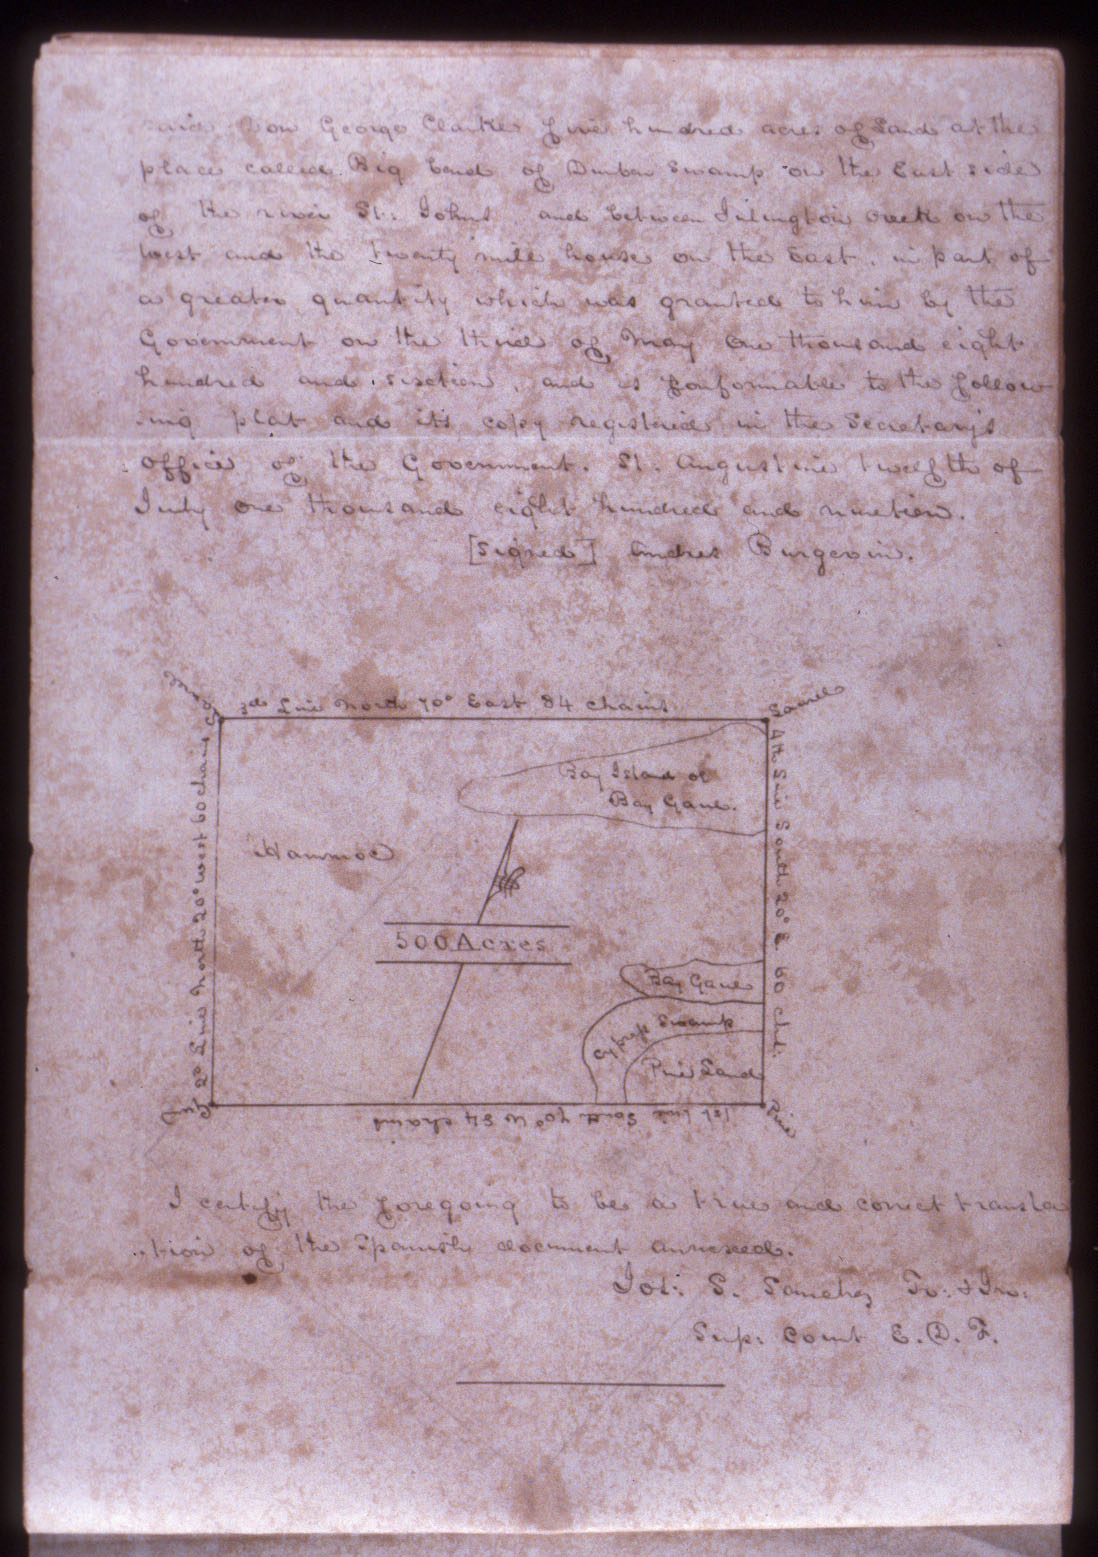 said Don George Clarke five hundred acres of Land at the
place called Big bend of Dunbar Swamp on the East side
of the river St: Johns and between Jilington creek on the
West and the Twenty mile house on the East. in part of
a greater quantity which was granted to him by the
Government on the third of May One thousand eight
hundred and sixteen, and is Conformable to the follow
ing plat and its copy registered in the Secretary's
Office of the Government. St. Augustine twelfth of
July one thousand eight hundred and nineteen.
[Signed] Andres Burgevin.
3d Line North 70° East 84 chains.
Same
2d Line North 20° West 60 chains
4th Line South 20° E. 60 chs.
Bay Island or
Bay Gaul.
Hammoc
500 Acres
Bay Gaul
Cypress Swamp
Pine Land
Pine
1st Line South 70° W 84 chains
Pine
I certify the foregoing to be a true and correct transla
tion of the Spanish document annexed.
Jos: S. Sanchez Tr: & Inr:
Sup: Court E. D. F.